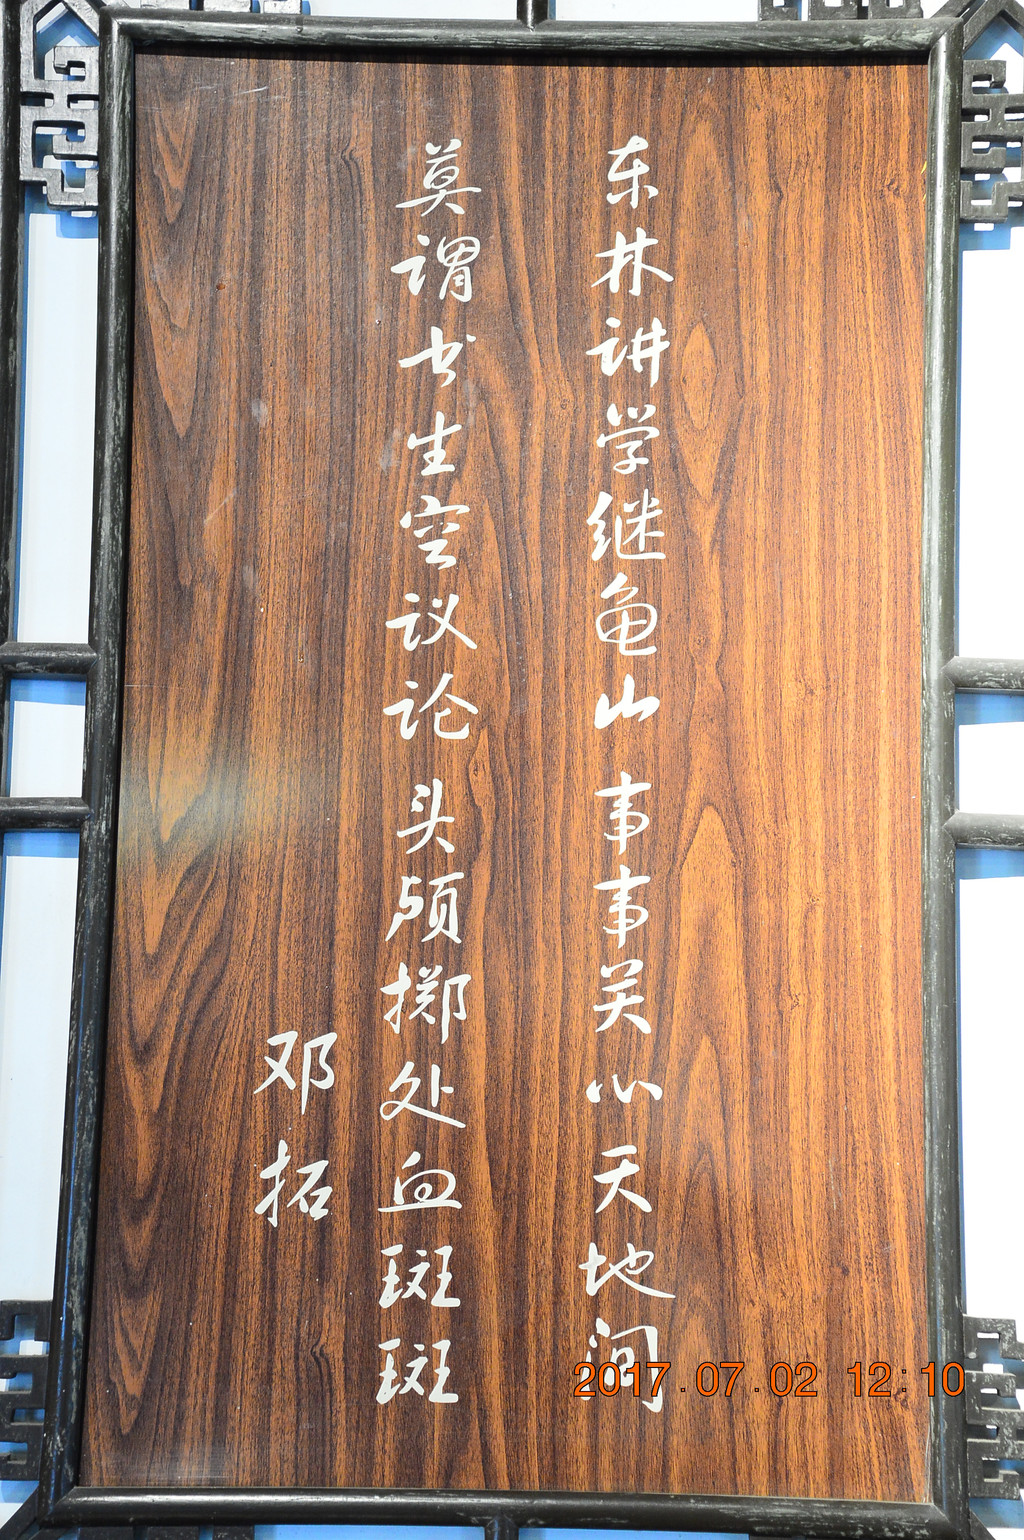 东林讲学继龟山 事事关心天地间
莫谓书生空议论 头颅掷处血斑斑
邓拓
2017.07.02 12:10